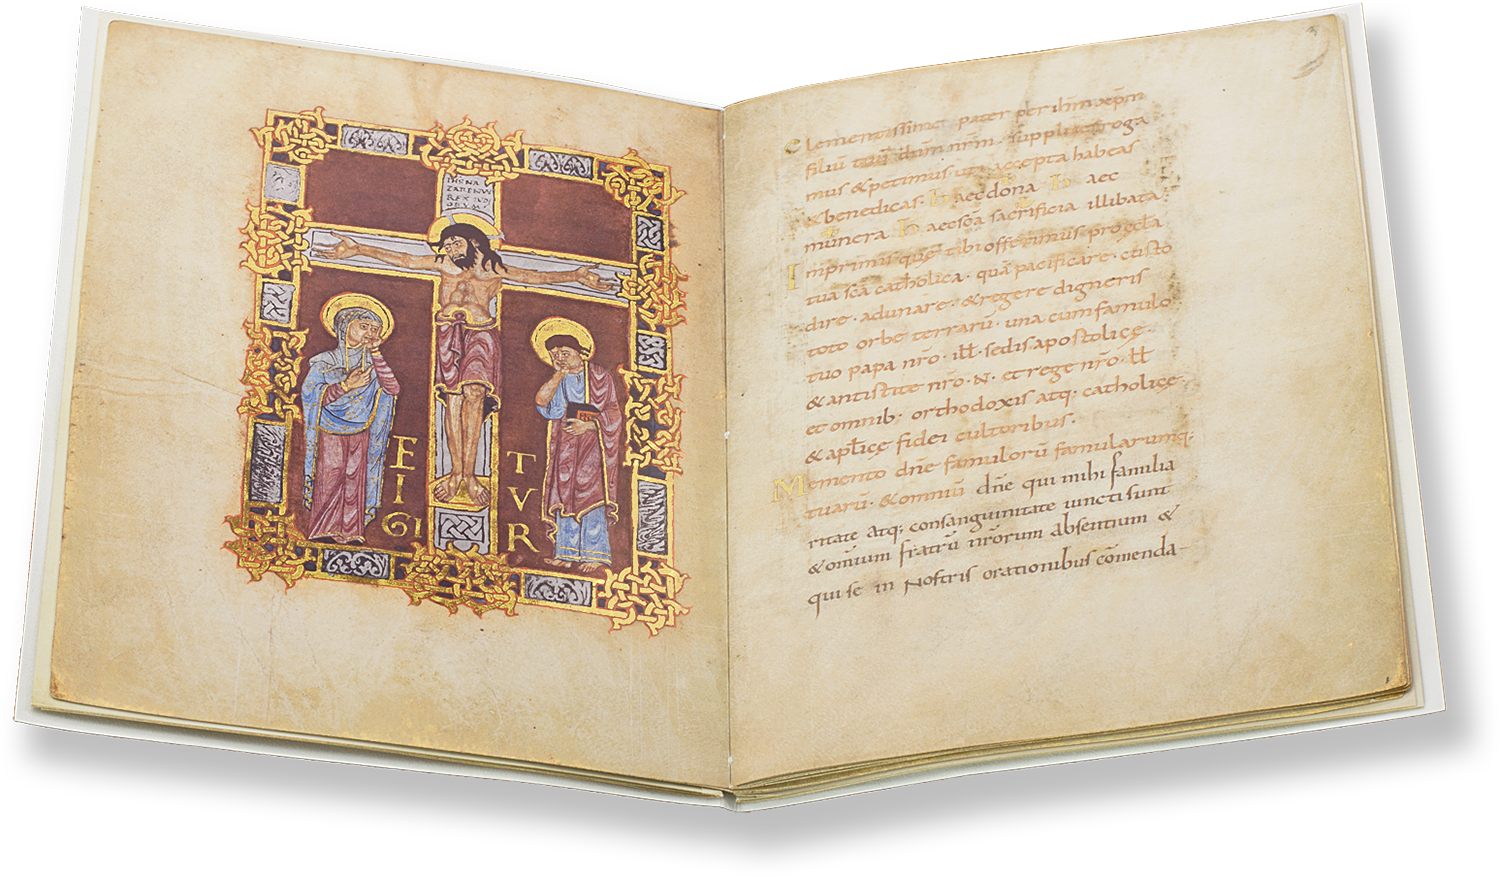 IHS NA
ZARENVS
REX IVD
EORVM
E
I
GI
T
V
R
Clementissime pater per ihm xpm
filiū tuū dnm nrm · supplices roga
mus & petimus uti accepta habeas
& benedicas · Haec dona Haec
munera Haec scā sacrificia illibata ·
Inprimis que tibi offerimus pro ęccla
tua scā catholica · quā pacificare · custo
dire · adunare · & regere digneris
toto orbe terrarū · una cum famulo
tuo papa nro · ill · sedis apostolicę ·
& antistite nro · N · et rege nro · ill
et omnib; orthodoxis atq; catholicę
& aplicę fidei cultoribus ·
Memento dne famulorū famularumq;
tuarū · & omniū dne qui mihi familia
ritate atq; consanguinitate iuncti sunt
& omium fratrū nrorum absentium &
qui se in nostris orationibus cōmenda-